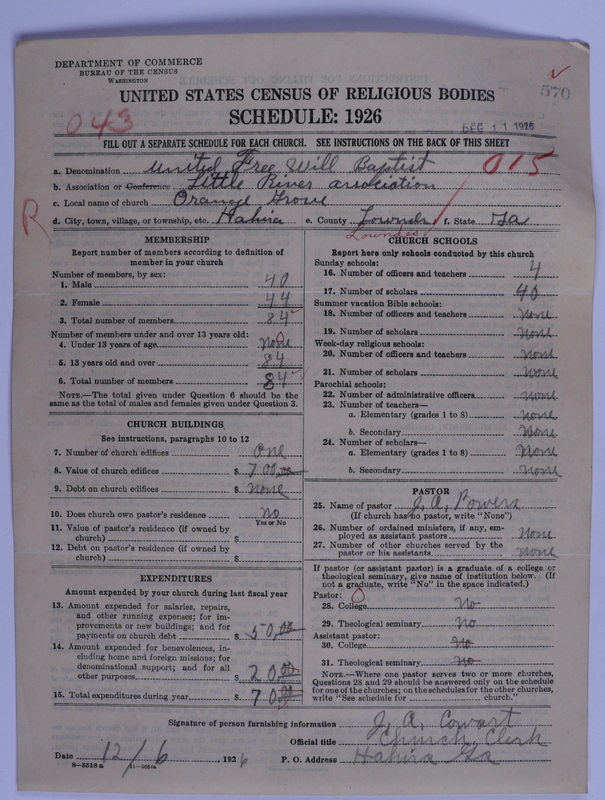 DEPARTMENT OF COMMERCE
BUREAU OF THE CENSUS
WASHINGTON
570
UNITED STATES CENSUS OF RELIGIOUS BODIES
SCHEDULE: 1926
043
DEC 11 1926
FILL OUT A SEPARATE SCHEDULE FOR EACH CHURCH. SEE INSTRUCTIONS ON THE BACK OF THIS SHEET
015
a. Denomination United Free Will Baptist
b. Association or Conference Little River association
c. Local name of church Orange Grove
R
d. City, town, village, or township, etc. Hahira e. County Lowndes f. State Ga
Lowndes
MEMBERSHIP
Report number of members according to definition of member in your church
Number of members, by sex:
1. Male 40
2. Female 44
3. Total number of members 84
Number of members under and over 13 years old:
4. Under 13 years of age None
5. 13 years old and over 84
6. Total number of members 84
NOTE.—The total given under Question 6 should be the
same as the total of males and females given under Question 3.
CHURCH BUILDINGS
See instructions, paragraphs 10 to 12
7. Number of church edifices One
8. Value of church edifices $ 700.00
9. Debt on church edifices $ None
10. Does church own pastor's residence No
Yes or No
11. Value of pastor's residence (if owned by
church) $
12. Debt on pastor's residence (if owned by
church) $
EXPENDITURES
Amount expended by your church during last fiscal year
13. Amount expended for salaries, repairs,
and other running expenses; for im-
provements or new buildings; and for
payments on church debt $ 50.00
14. Amount expended for benevolences, in-
cluding home and foreign missions; for
denominational support; and for all
other purposes $ 20.00
15. Total expenditures during year $ 70.00
CHURCH SCHOOLS
Report here only schools conducted by this church
Sunday schools:
16. Number of officers and teachers 4
17. Number of scholars 40
Summer vacation Bible schools:
18. Number of officers and teachers None
19. Number of scholars None
Week-day religious schools:
20. Number of officers and teachers None
21. Number of scholars None
Parochial schools:
22. Number of administrative officers None
23. Number of teachers—
a. Elementary (grades 1 to 8) None
b. Secondary None
24. Number of scholars—
a. Elementary (grades 1 to 8) None
b. Secondary None
PASTOR
25. Name of pastor J. A. Powers
(If church has no pastor, write "None")
26. Number of ordained ministers, if any, em-
ployed as assistant pastors None
27. Number of other churches served by the
pastor or his assistants None
If pastor (or assistant pastor) is a graduate of a college or
theological seminary, give name of institution below. (If
not a graduate, write "No" in the space indicated.)
Pastor:
28. College No
29. Theological seminary No
Assistant pastor:
30. College No
31. Theological seminary No
NOTE.—Where one pastor serves two or more churches,
Questions 28 and 29 should be answered only on the schedule
for one of the churches; on the schedules for the other churches,
write "See schedule for church."
Signature of person furnishing information J. A. Cowart
Official title Church Clerk
Date 12/6, 1926 P. O. Address Hahira Ga
8—5518a